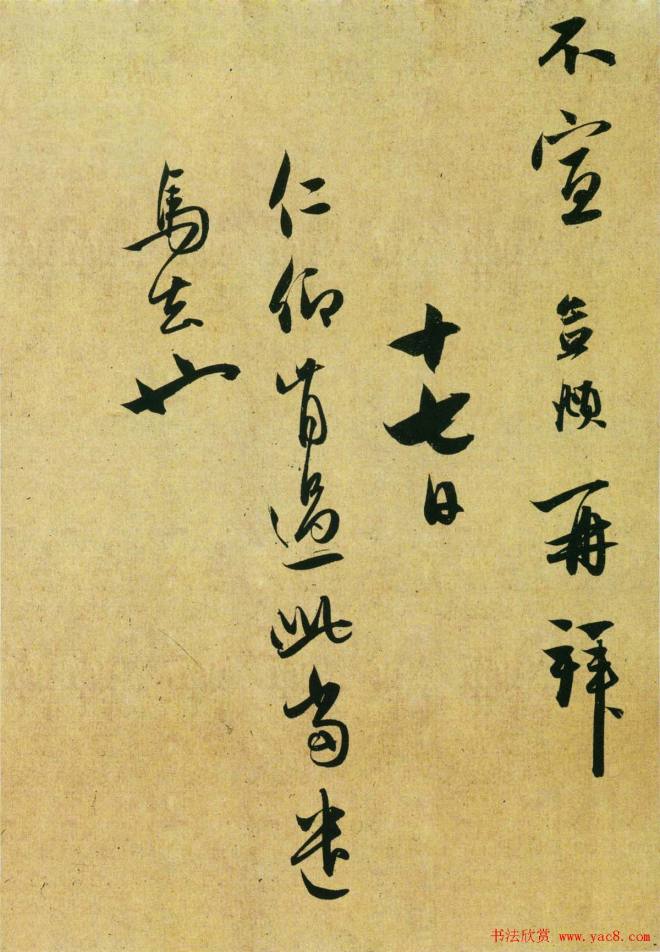 不宣 再拜
十七日
仁仰肯過此當遣
馬去也
书法欣赏 www.yac8.com